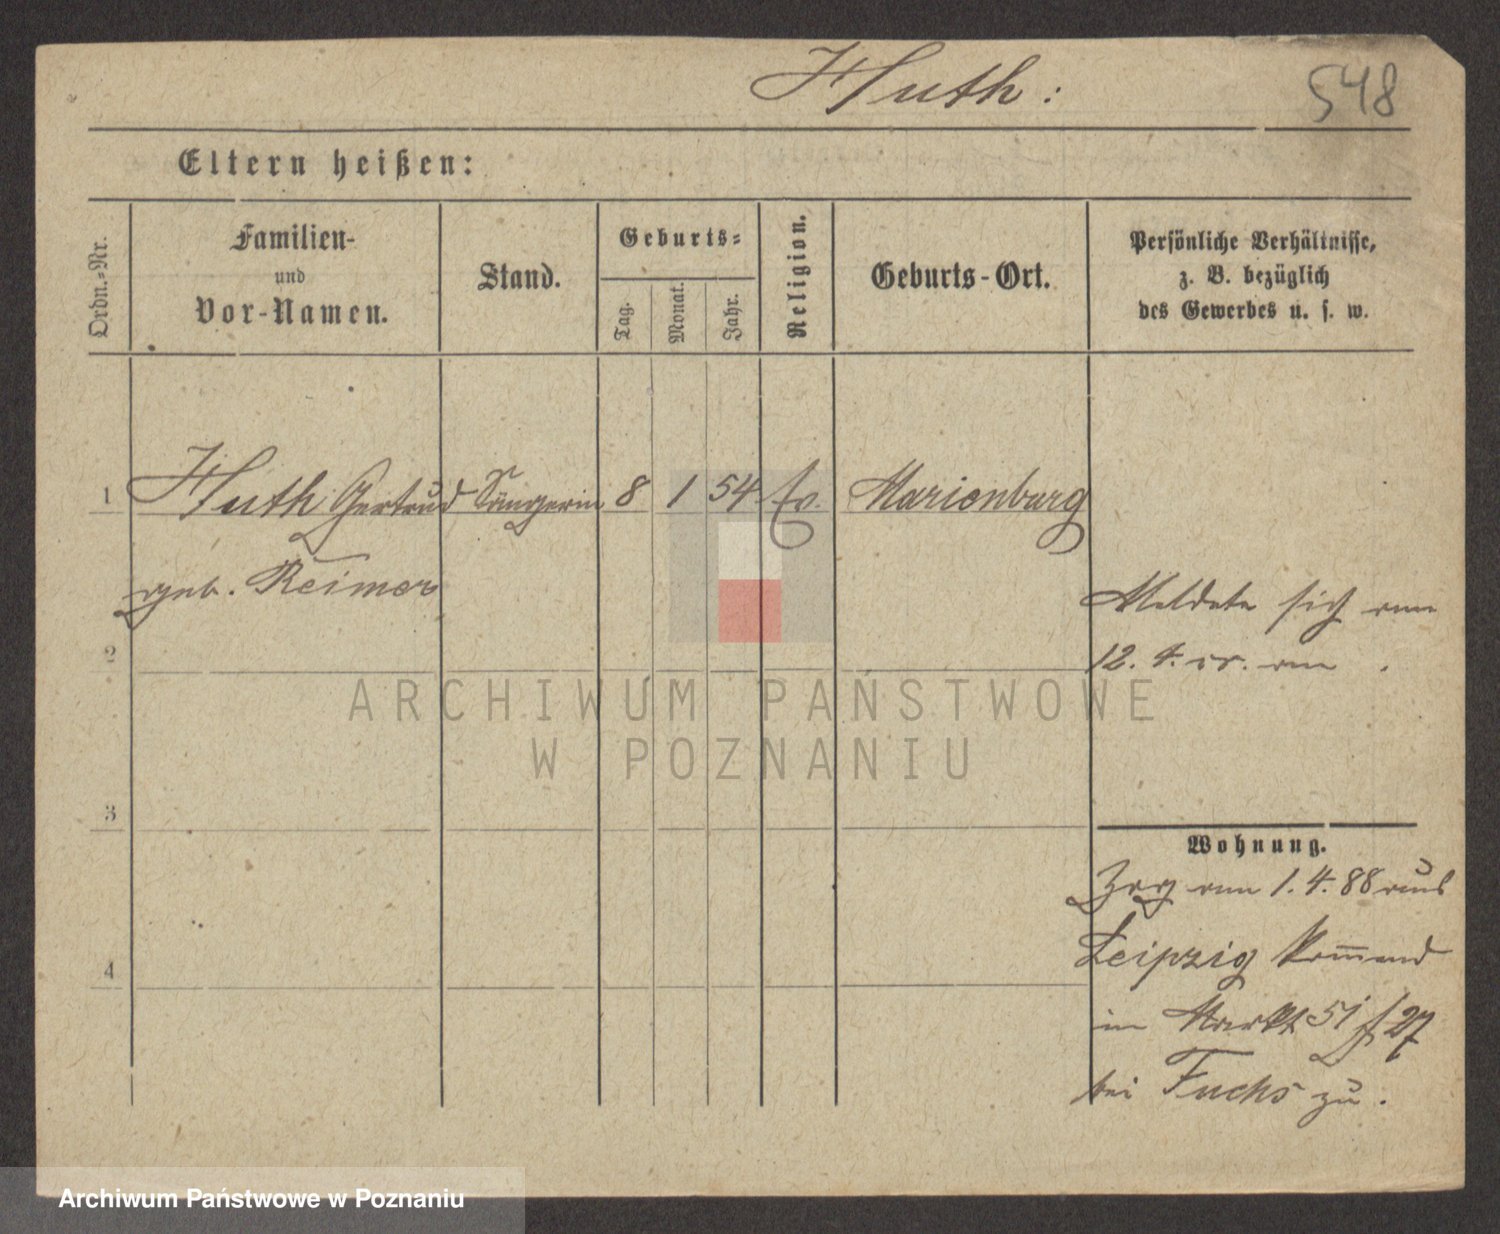 Huth:
548
Eltern heißen:
Ordn.-Nr.
Familien-
und
Vor-Namen.
Stand.
Geburts-
Tag.
Monat.
Jahr.
Religion.
Geburts-Ort.
Persönliche Verhältnisse,
z. B. bezüglich
des Gewerbes u. s. w.
1 Huth Gertrud Sängerin 8 1 54 Ev. Marienburg
geb. Reimer
Meldete sich am
2
12. 4. cr. an .
ARCHIWUM PAŃSTWOWE
W POZNANIU
3
Wohnung.
Zog am 1. 4. 88 aus
Leipzig kom̅end
4
in Markt 51 f 27
bei Fuchs zu.
Archiwum Państwowe w Poznaniu